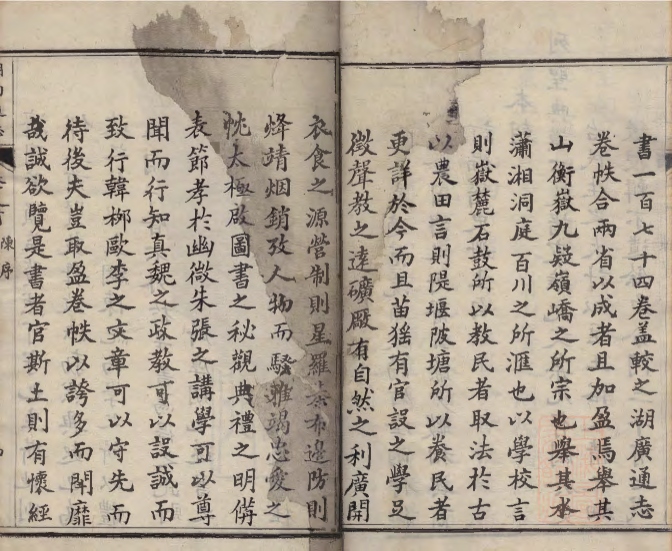 書一百七十四卷蓋較之湖廣通志
卷帙合兩省以成者且加盈焉舉其
山衡嶽九疑嶺嶠之所宗也舉其水
瀟湘洞庭百川之所滙也以學校言
則嶽麓石鼓所以教民者取法於古
以農田言則隄堰陂塘所以養民者
更詳於今而且苗猺有官設之學足
徵聲教之逹礦厰有自然之利廣開
衣食之源營制則星羅棊布邊防則
烽靖烟銷攷人物而騷雅竭忠愛之
忱太極啟圖書之秘觀典禮之明備
表節孝於幽微朱張之講學可以尊
聞而行知真魏之政教可以設誠而
致行韓栁歐李之文章可以守先而
待後夫豈取盈卷帙以誇多而鬭靡
哉誠欲覽是書者官斯土則有懷經
陳序